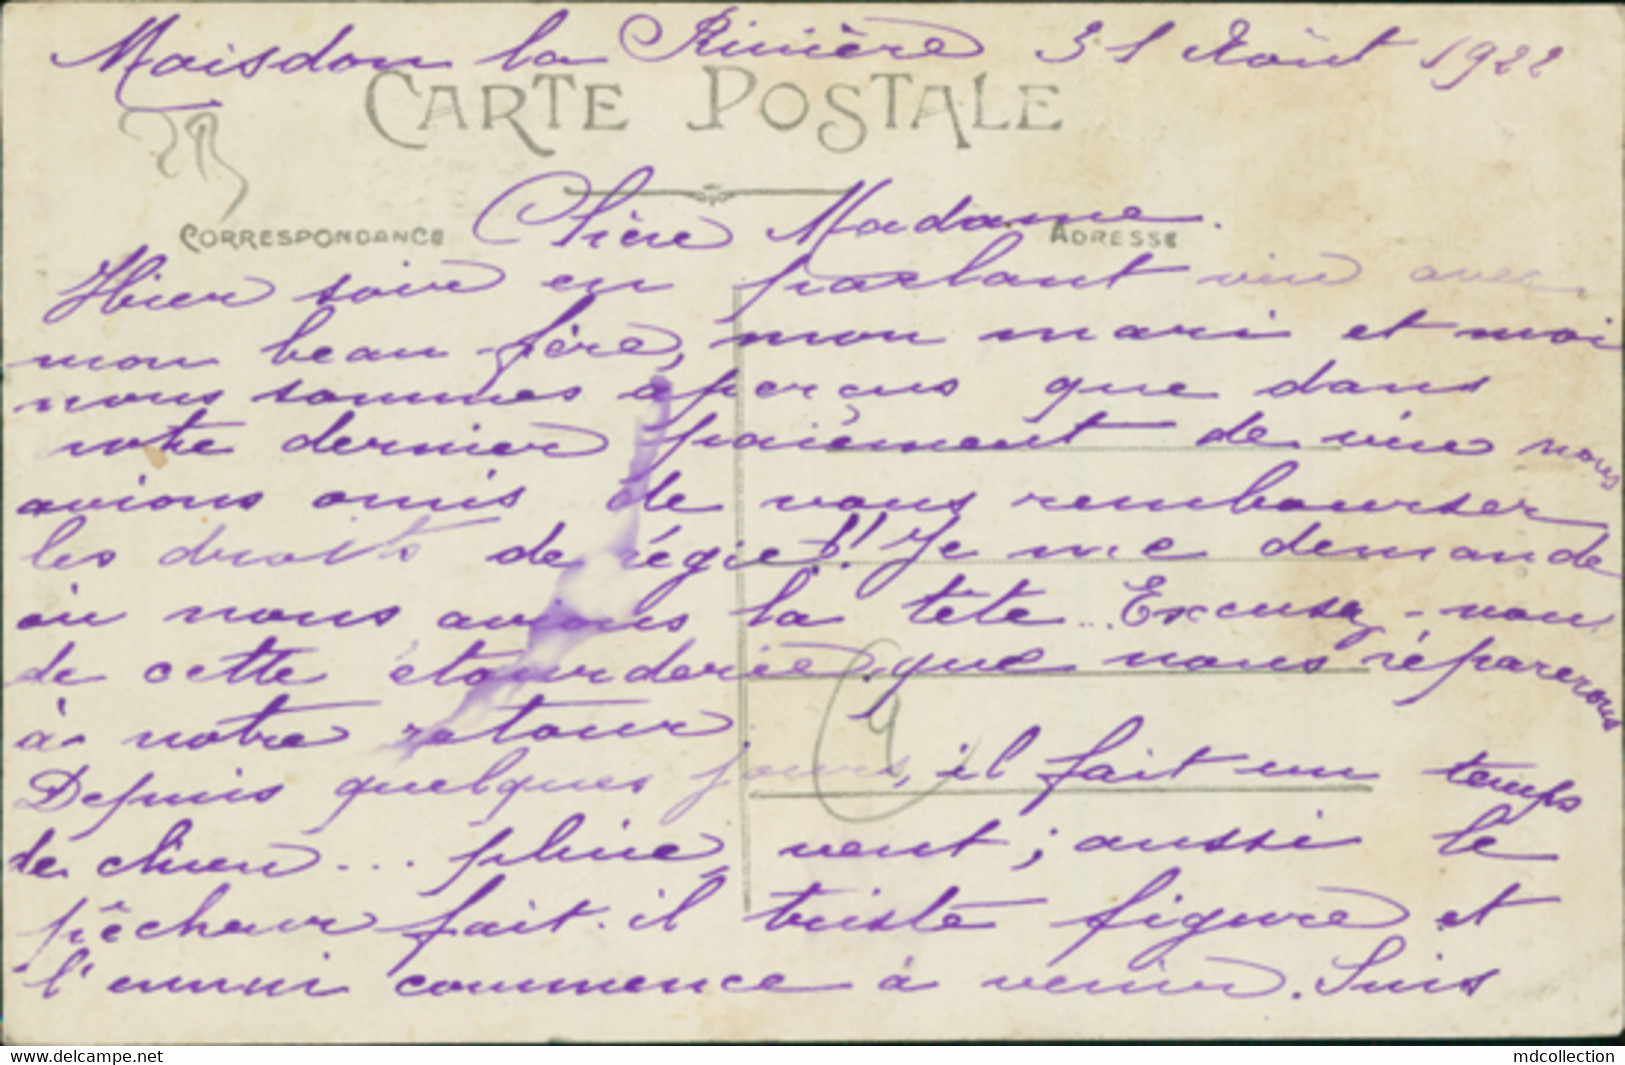 Maisdon la Rivière 31 Août 1922
CARTE POSTALE
CORRESPONDANCE
Chère Madame.
ADRESSE
Hier soir en parlant vin avec
mon beau-frère, mon mari et moi
nous sommes aperçus que dans
notre dernier paiement de vin nous
avions omis de vous rembourser
les droits de régie!! Je me demande
où nous avions la tête... Excusez-nous
de cette étourderie que nous réparerons
à notre retour
Depuis quelques jours, il fait un temps
de chien... pluie, vent; aussi le
pêcheur fait-il triste figure et
l'ennui commence à venir. Suis
www.delcampe.net
mdcollection